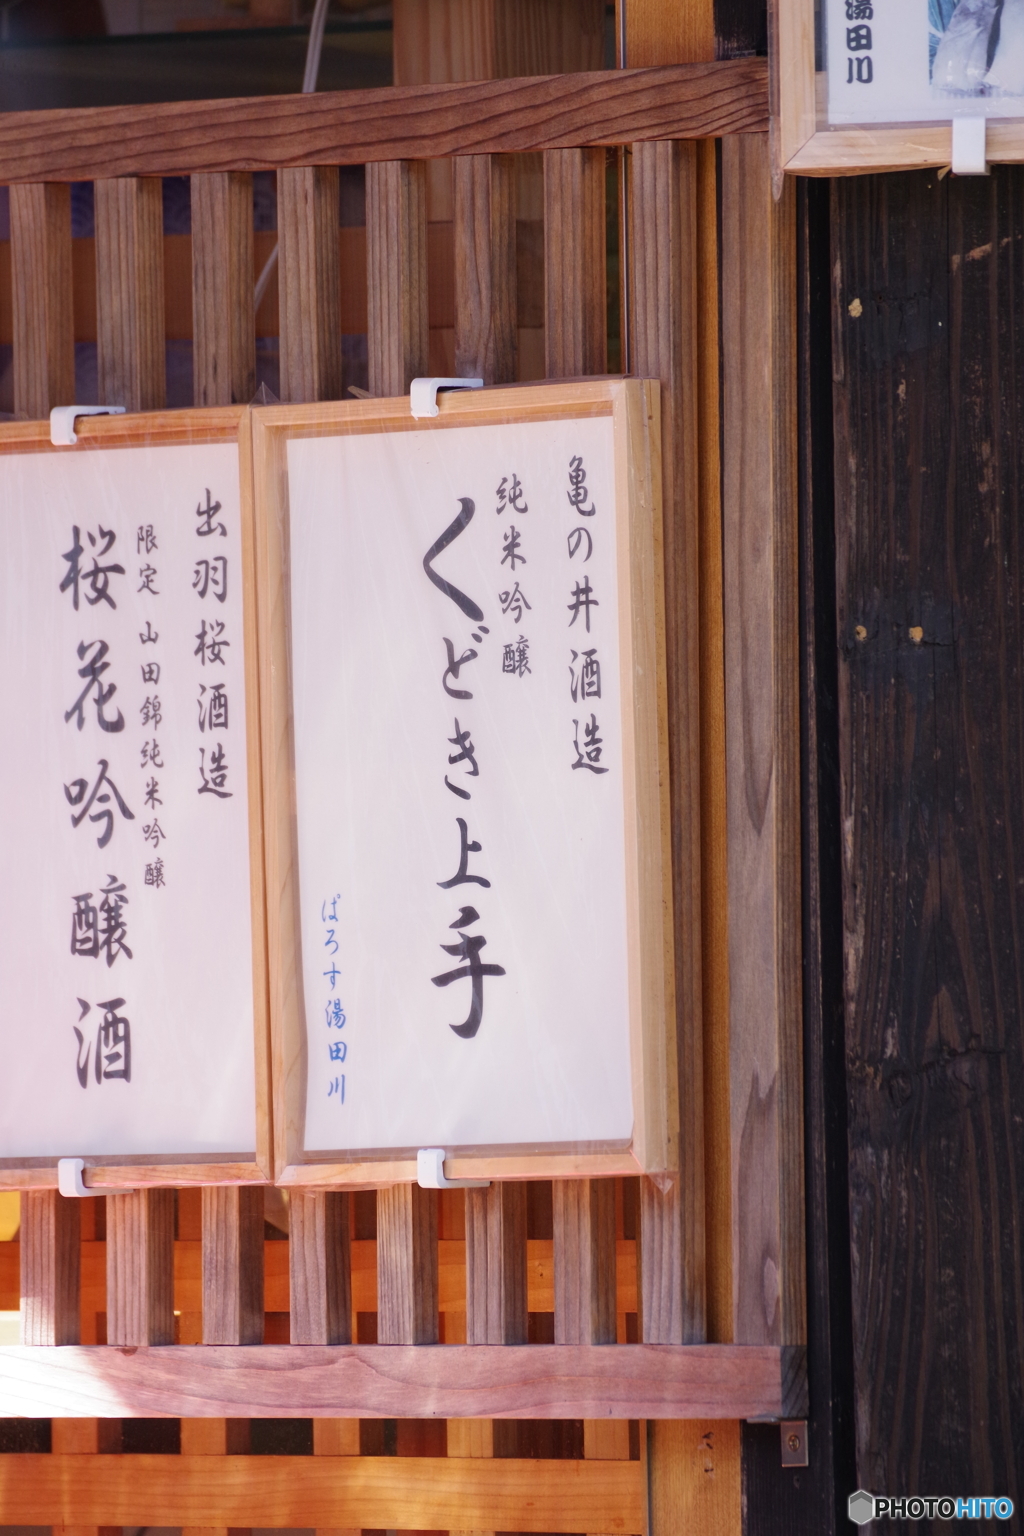 湯田川
亀の井酒造
純米吟醸
くどき上手
ぱろす湯田川
出羽桜酒造
限定 山田錦純米吟醸
桜花吟醸酒
PHOTOHITO